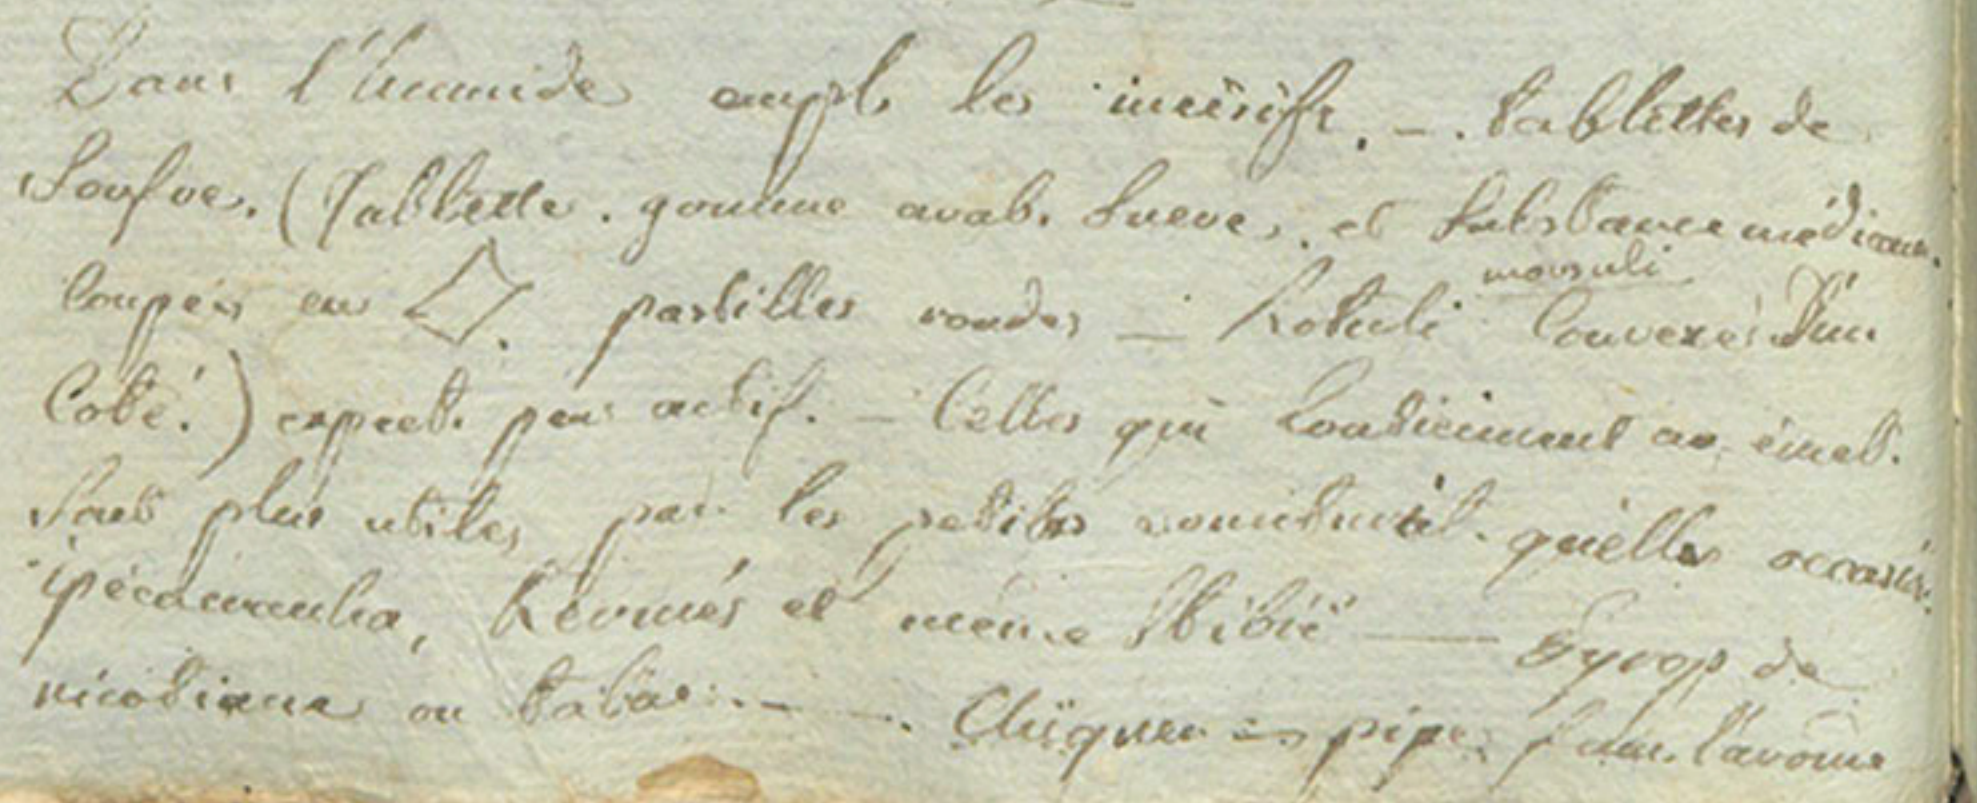 Dans l'humide empl. les incisifs. — . tablettes de
soufre. (Tablette. gomme arab. sucre, et substance médicam.
coupées en pastilles rondes — Rotuli morsuli convexes d'un
coté.) expect. peu actif. — Celles qui contiennent un émet.
sont plus utiles par les petits vomiturit. qu'elles occasio.
ipécacuanha, Kermés et même stibié — Syrop de
nicotiane ou tabac. — . Chiquer — pipe fum. l'arome